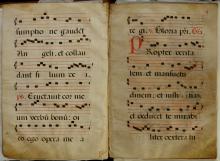 sumptio ne gaudet
An geli, et collau
dant filium de i.
ps. Eructavit cor me
um verbū bonū: di
co ego opera me a
re gi. ℣. Gloria pri.
Propter verita
tem et mansuetu
dinem, et iustitias
et deducet te mirabi
liter dextera tu